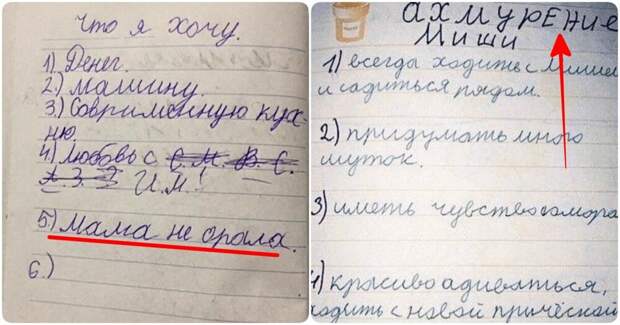 Что я хочу.
1) Денег.
2) машину.
3) Совримённую кух-
ню.
4) Любовь с С. М. В. С.
А. З. ? И.М!
5) Мама не орала.
6.)
АХМУРЕНИЕ
МИШИ
1) всегда ходить с Мишей
и садиться рядом.
2) придумать много
шуток.
3) иметь чувство юмора
4) красиво адиваться,
ходить с новой причёской